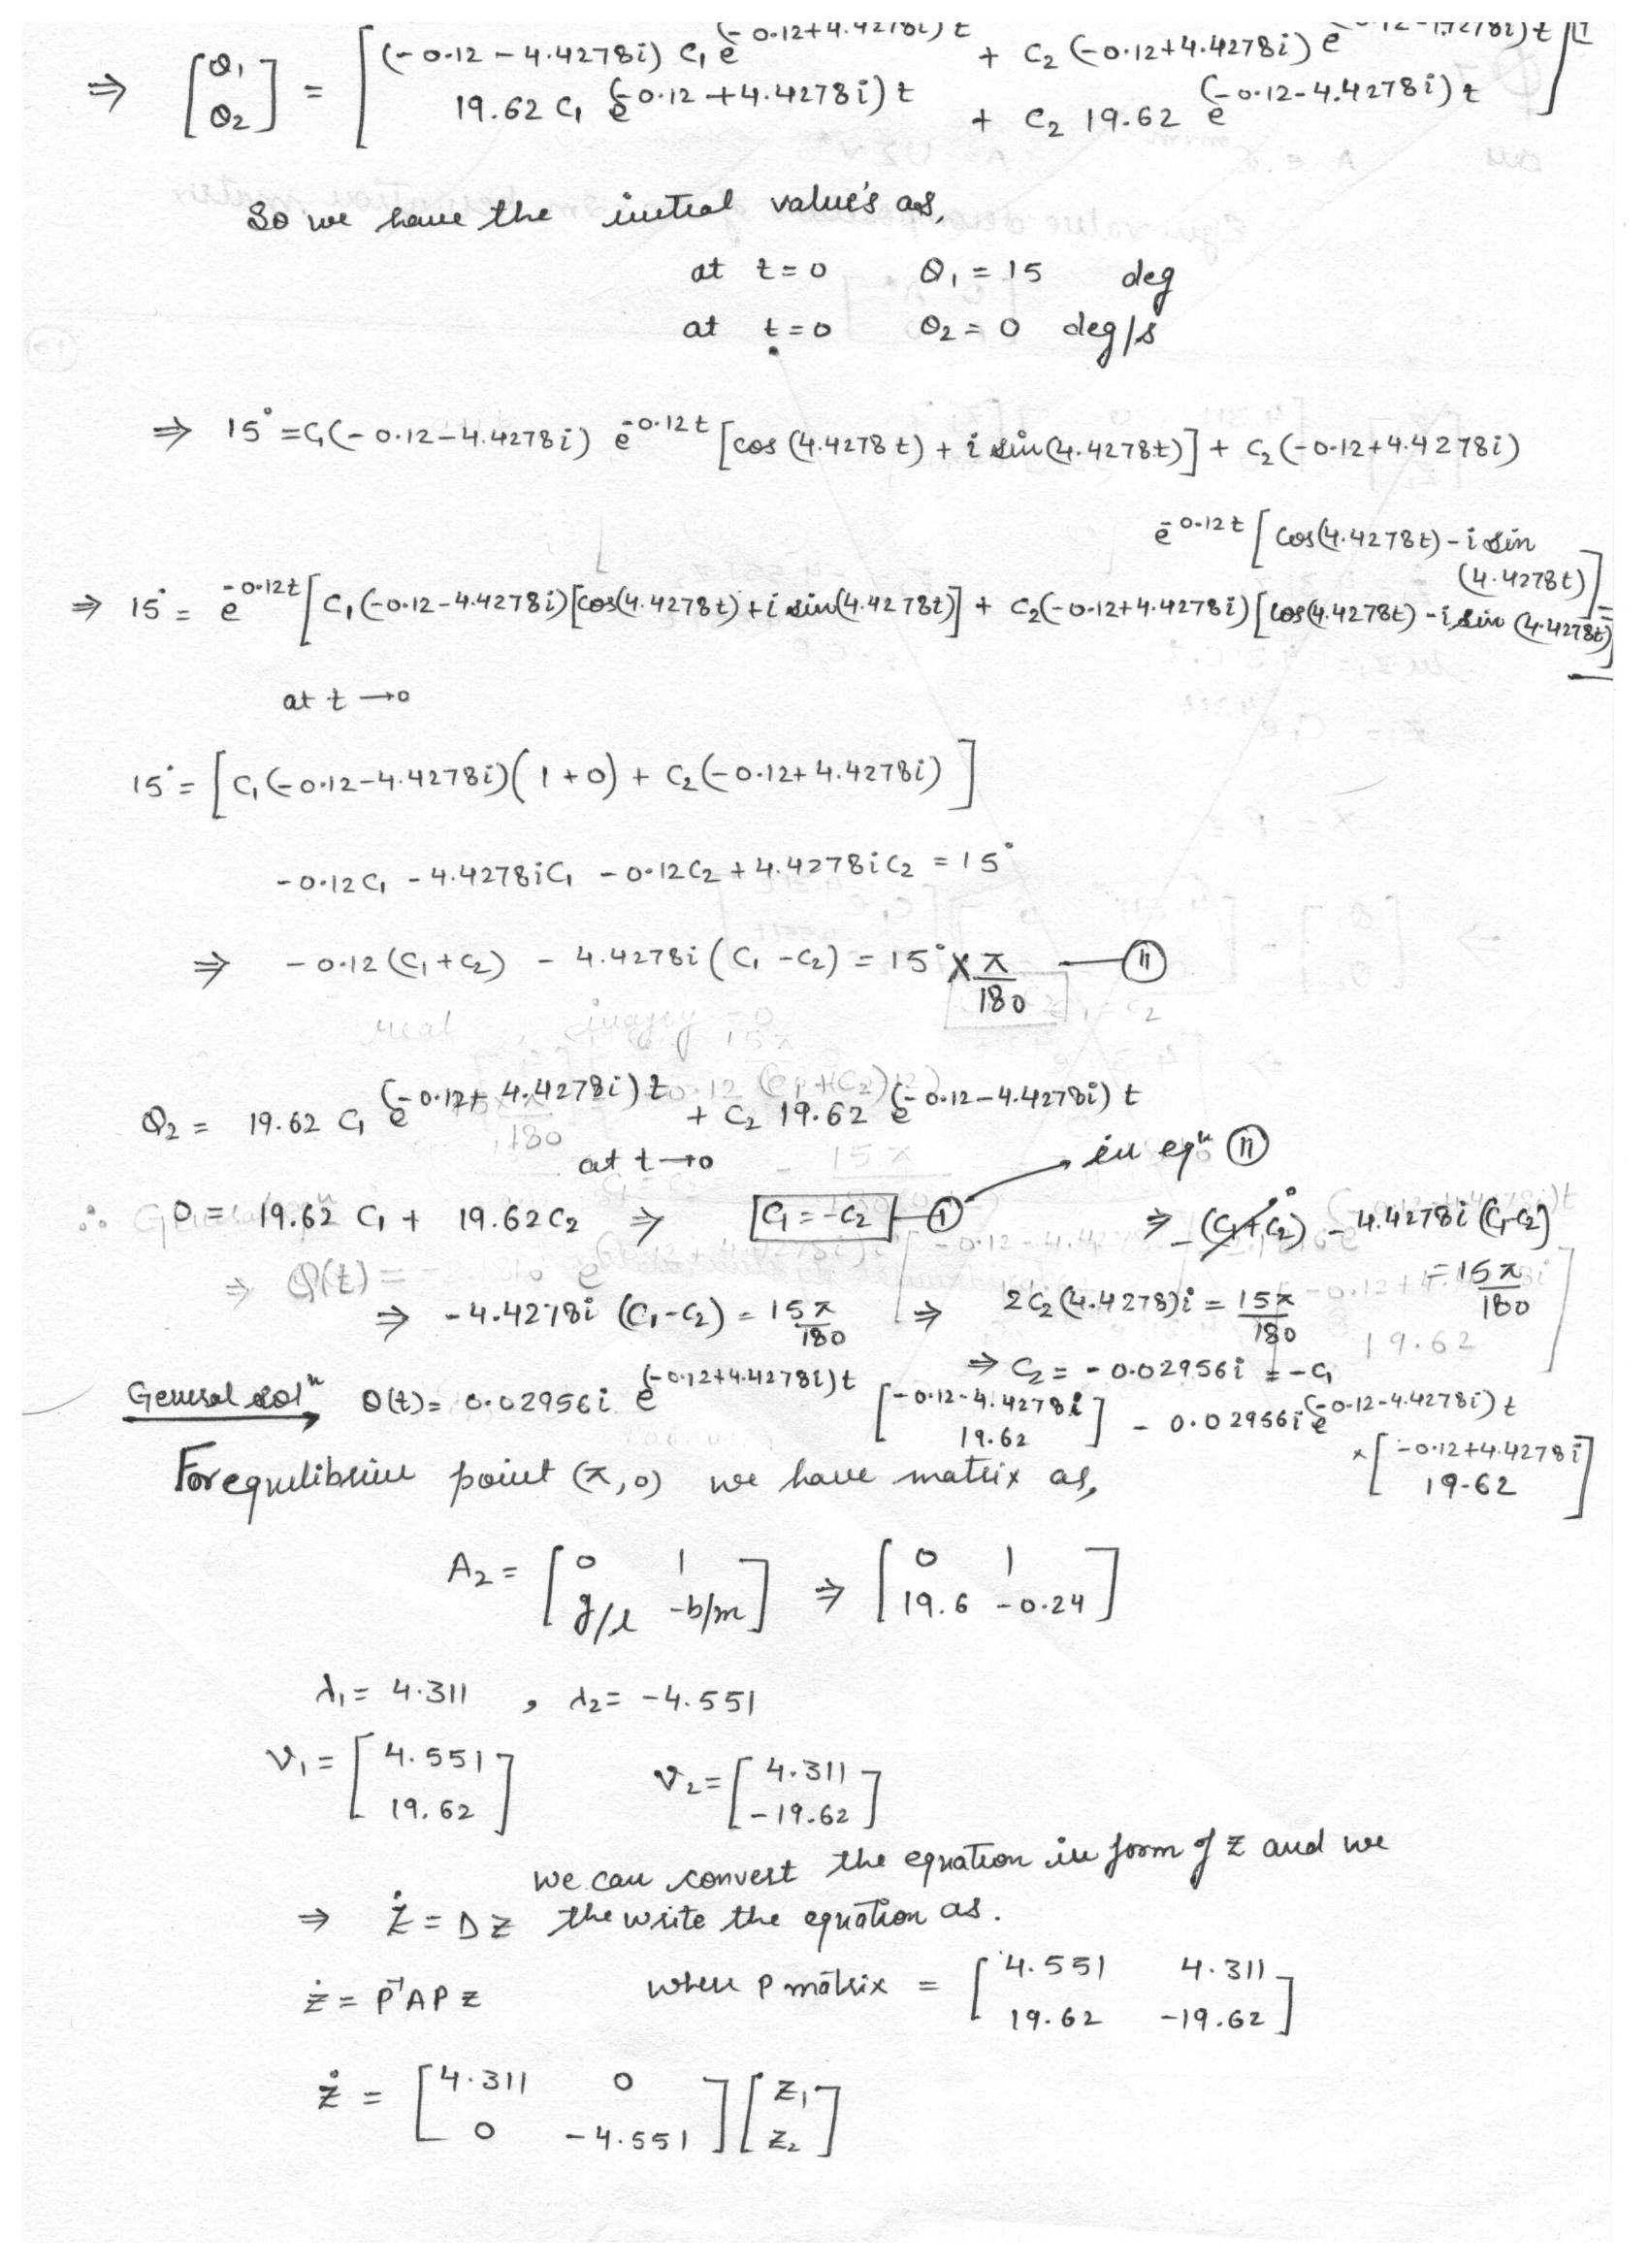 ⇒ [θ₁ θ₂] = [(-0.12-4.4278i) C₁ e^(-0.12+4.4278i)t + C₂ (-0.12+4.4278i) e^(-0.12-4.4278i)t
19.62 C₁ e^(-0.12+4.4278i)t + C₂ 19.62 e^(-0.12-4.4278i)t]
So we have the initial value's as,
at t=0 θ₁ = 15 deg
at t=0 θ₂ = 0 deg/s
⇒ 15° = C₁(-0.12-4.4278i) e^-0.12t [cos(4.4278t) + i sin(4.4278t)] + C₂(-0.12+4.4278i)
e^-0.12t [cos(4.4278t) - i sin (4.4278t)]
⇒ 15° = e^-0.12t [C₁(-0.12-4.4278i)[cos(4.4278t) + i sin(4.4278t)] + C₂(-0.12+4.4278i)[cos(4.4278t) - i sin(4.4278t)]]
at t→0
15° = [C₁(-0.12-4.4278i)(1+0) + C₂(-0.12+4.4278i)]
-0.12C₁ - 4.4278iC₁ - 0.12C₂ + 4.4278iC₂ = 15°
⇒ -0.12(C₁+C₂) - 4.4278i(C₁-C₂) = 15° × π/180 — (II)
θ₂ = 19.62 C₁ e^(-0.12+4.4278i)t + C₂ 19.62 e^(-0.12-4.4278i)t
at t→0
in eqⁿ (II)
∴ 0 = 19.62 C₁ + 19.62C₂ ⇒ C₁ = -C₂ (I) ⇒ -(C₁+C₂)⁰ - 4.4278i(C₁-C₂) = 15π/180
⇒ -4.4278i (C₁-C₂) = 15π/180 ⇒ 2C₂(4.4278)i = 15π/180
⇒ C₂ = -0.02956i = -C₁
General solⁿ θ(t) = 0.02956i e^(-0.12+4.4278i)t [-0.12-4.4278i 19.62] - 0.02956i e^(-0.12-4.4278i)t × [-0.12+4.4278i 19.62]
For equilibrium point (π,0) we have matrix as,
A₂ = [0 1 g/l -b/m] ⇒ [0 1 19.6 -0.24]
λ₁ = 4.311 , λ₂ = -4.551
v₁ = [4.551 19.62] v₂ = [4.311 -19.62]
we can convert the equation in form of z and we
⇒ ż = Dz the write the equation as.
ż = P⁻¹AP z when P matrix = [4.551 4.311 19.62 -19.62]
ż = [4.311 0 0 -4.551] [z₁ z₂]